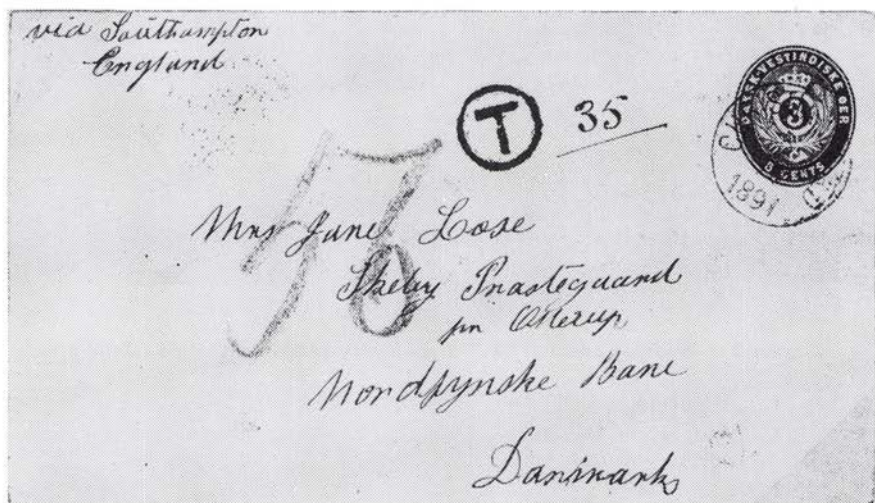 via Southampton
England
T 35
DANSK VESTINDISKE ØER
3
CENTS
1891
53
Mrs Jane Lose
Skeby Præstegaard
pr Otterup
Nordfynske Bane
Danmark